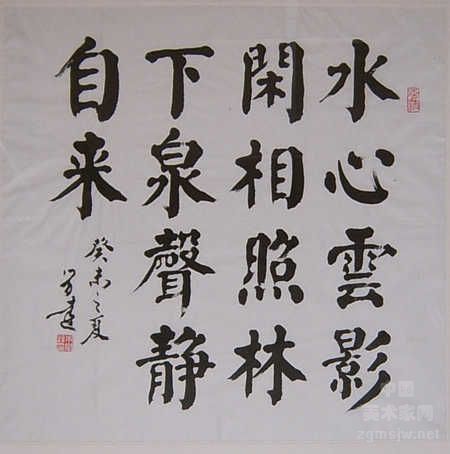 水心雲影
閑相照林
下泉聲静
自来
癸未之夏
中国
美术家网
zgmsjw.net